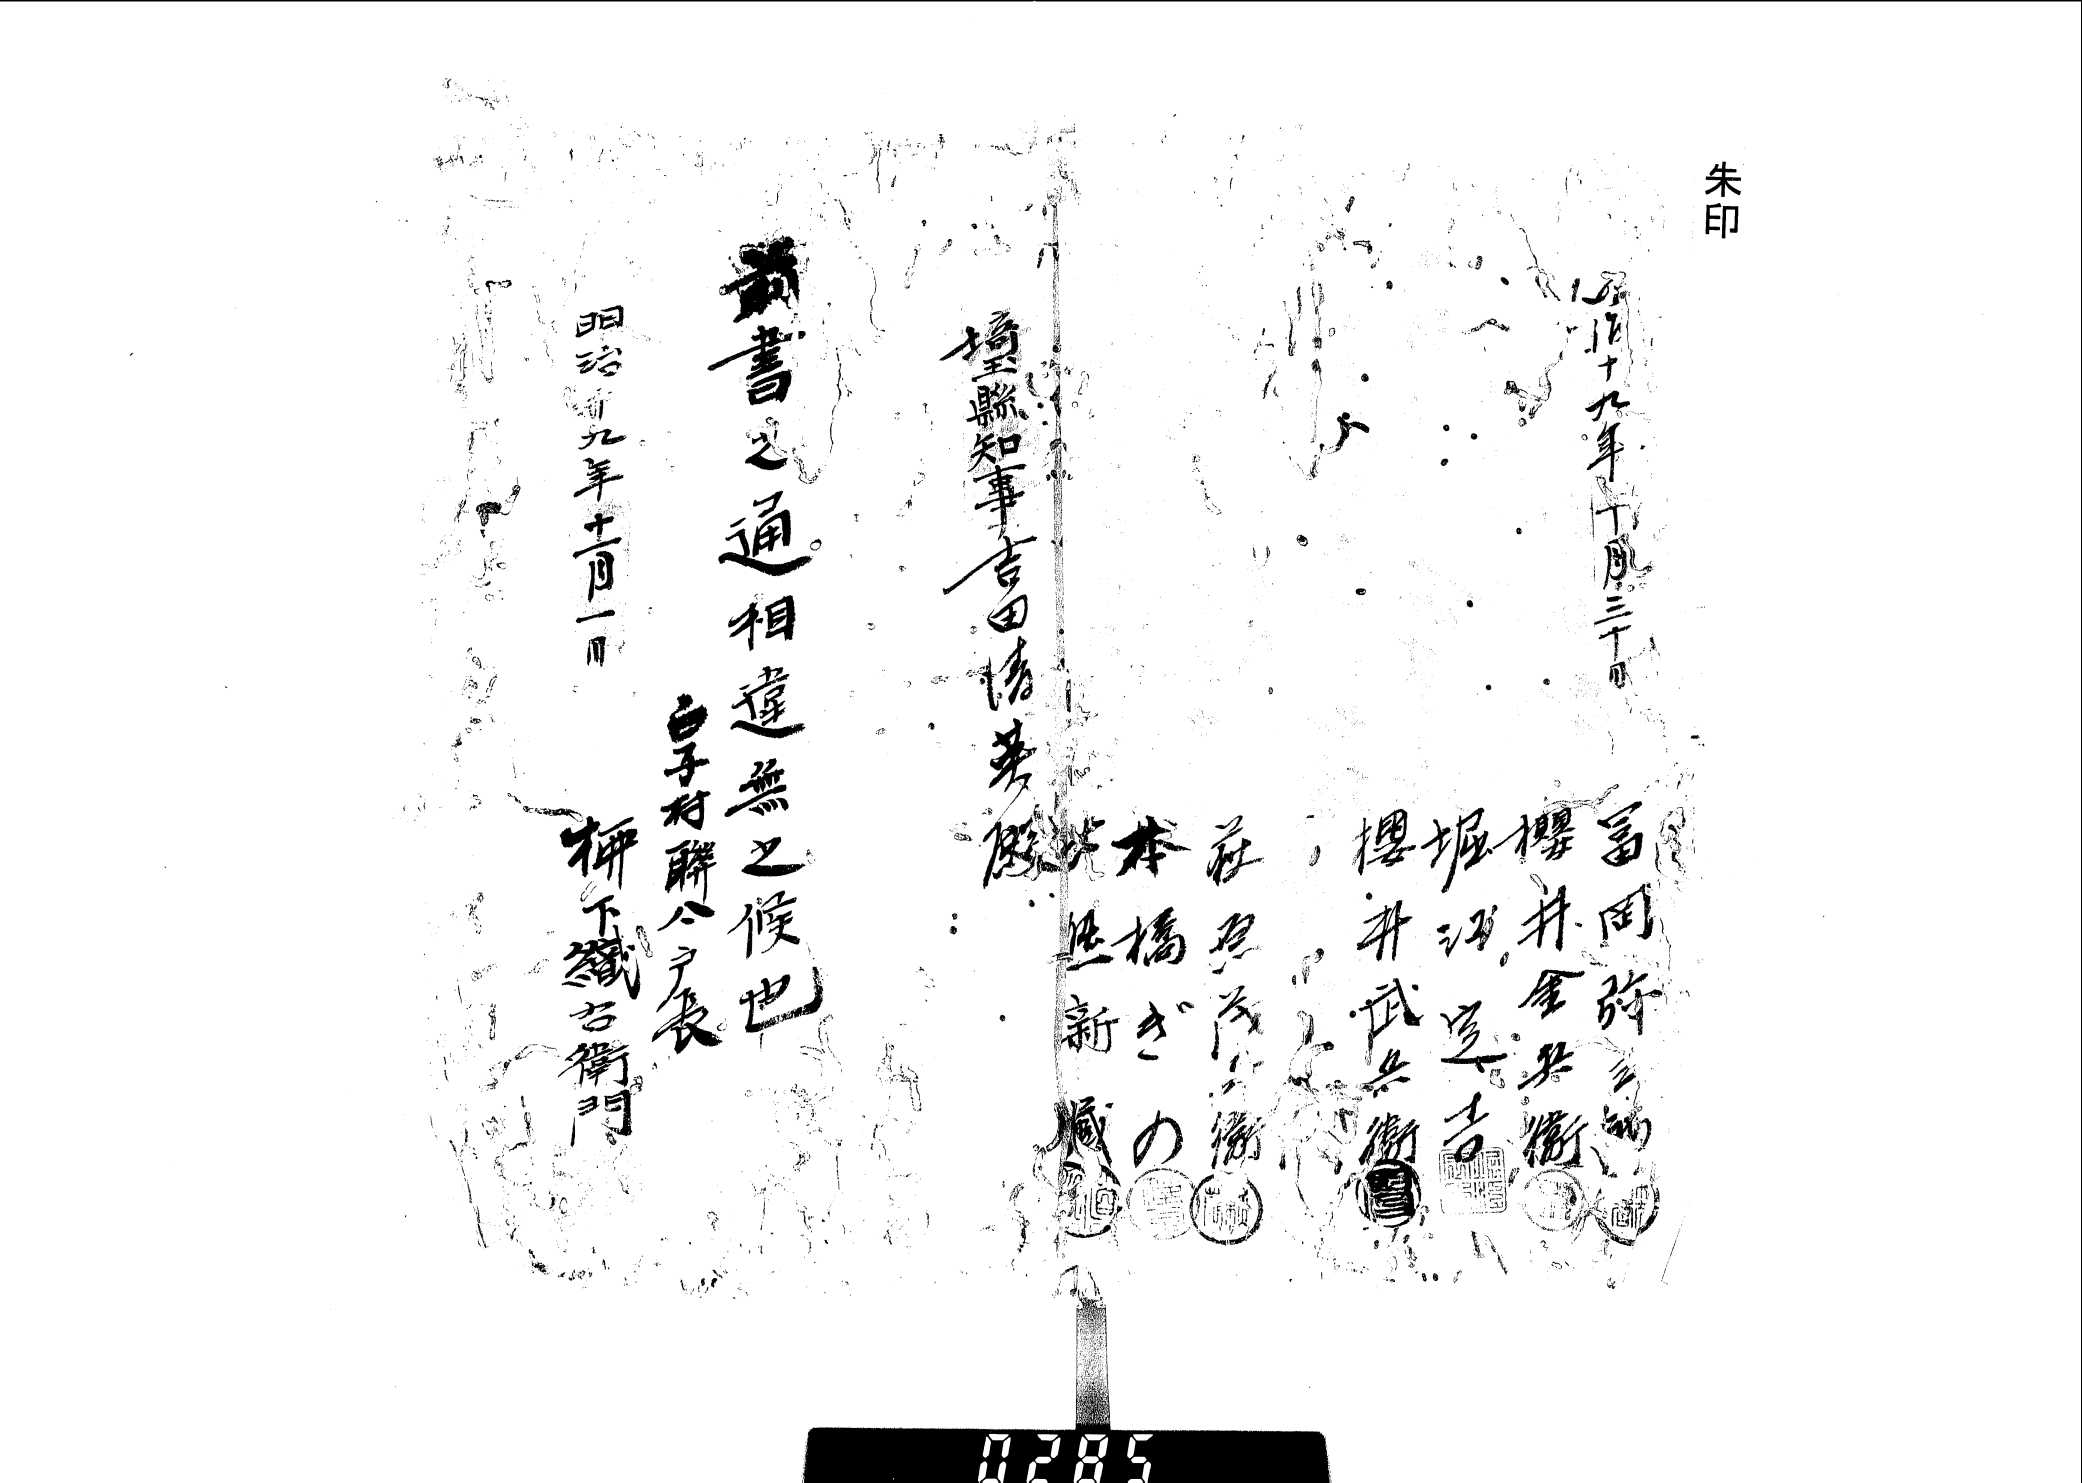 朱印
明治十九年十月三十日
冨岡弥三郎
櫻井金兵衛
堀江定吉
櫻井武兵衛
荻原茂兵衛
本橋ぎの
熊新蔵
埼玉縣知事吉田清英殿
前書之通相違無之候也
白子村聯合戸長
柳下織右衛門
明治十九年十一月一日
0285